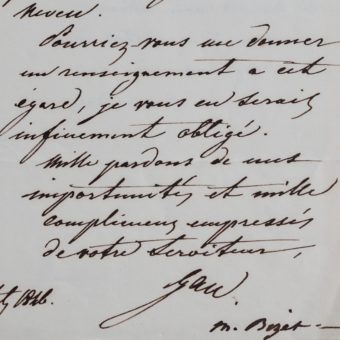 neveu.
Pourriez-vous me donner
un renseignement a cet
égard, je vous en serais
infiniment obligé.
Mille pardons de mes
importunités et mille
complimens empressés
de votre serviteur,
Gau
1846.
M. Bizet